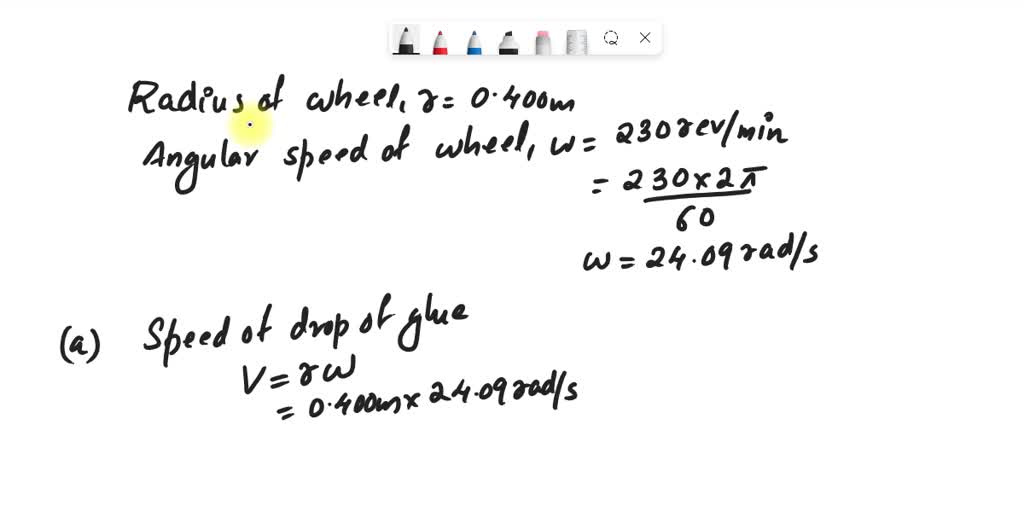 Radius of wheel, r = 0.400m
Angular speed of wheel, w = 230rev/min
= 230×2π
60
w = 24.09rad/s
(a) Speed of drop of glue
V = rw
= 0.400m× 24.09rad/s